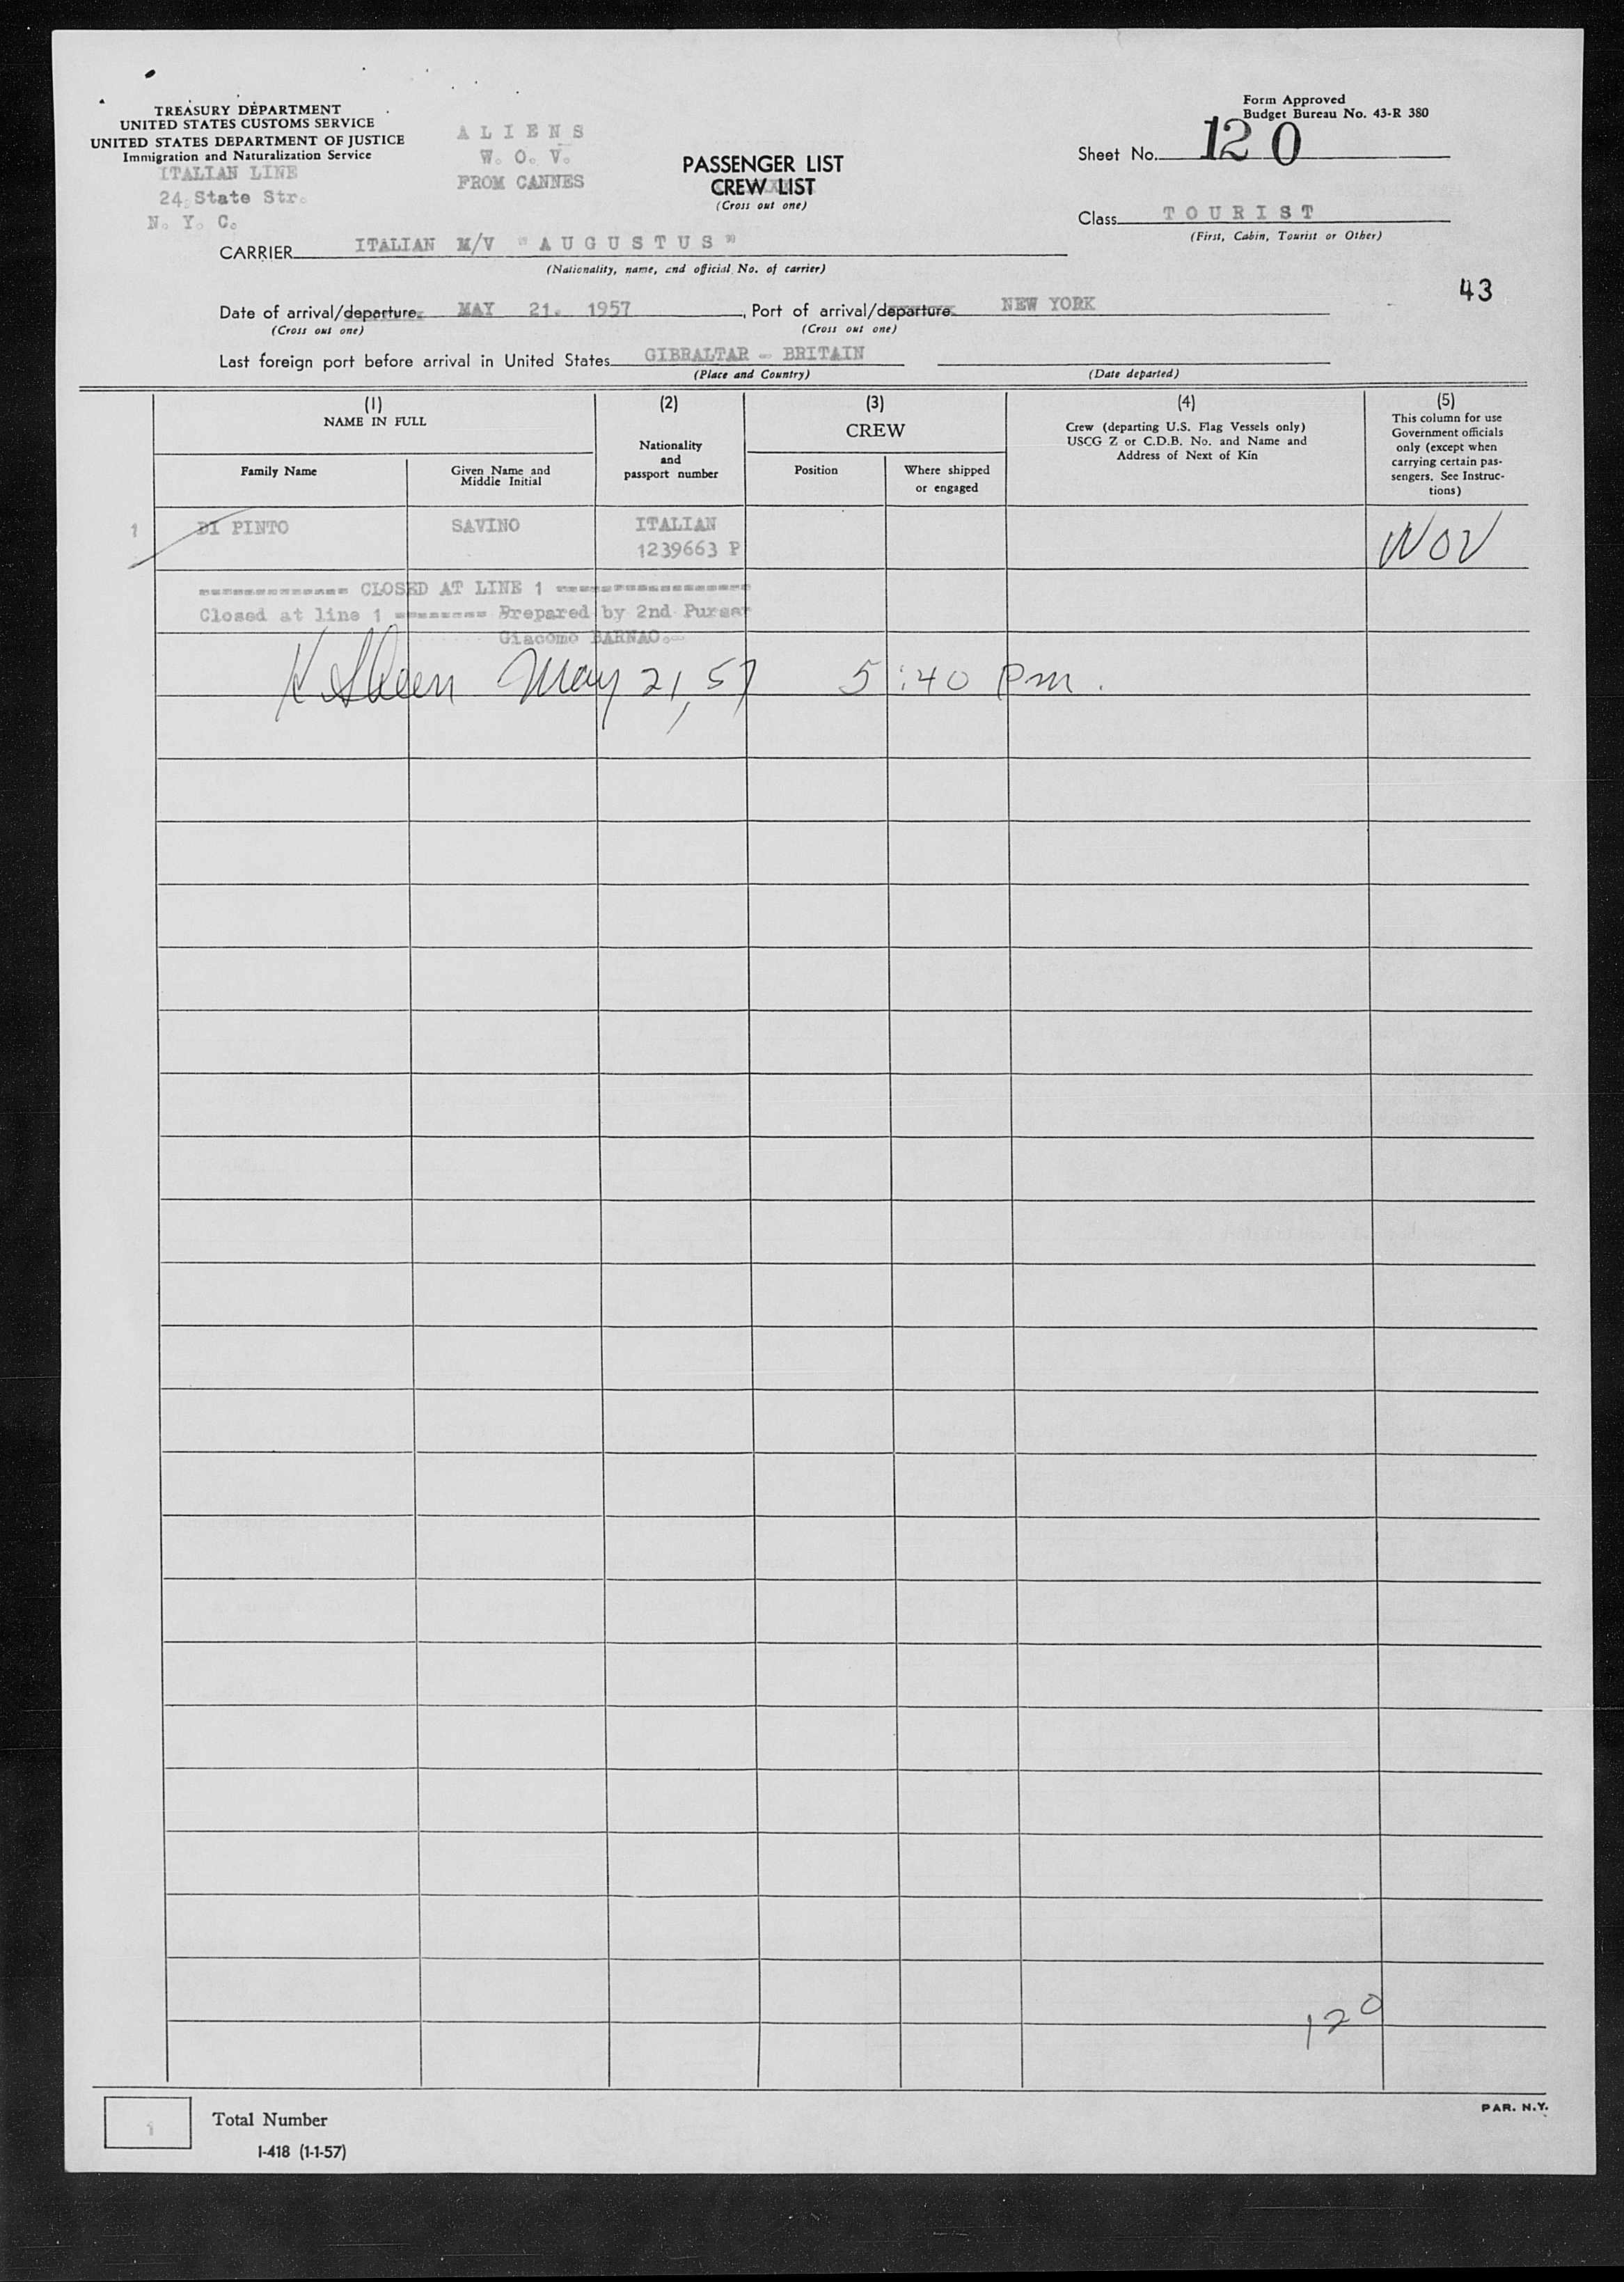 TREASURY DEPARTMENT
UNITED STATES CUSTOMS SERVICE
UNITED STATES DEPARTMENT OF JUSTICE
Immigration and Naturalization Service
ITALIAN LINE
24 State Str.
N. Y. C.
A L I E N S
W. O. V.
FROM CANNES
PASSENGER LIST
CREW LIST
(Cross out one)
Form Approved
Budget Bureau No. 43-R 380
Sheet No. 120
Class T O U R I S T
(First, Cabin, Tourist or Other)
CARRIER ITALIAN M/V "A U G U S T U S"
(Nationality, name, and official No. of carrier)
43
Date of arrival/departure MAY 21. 1957, Port of arrival/departure NEW YORK
(Cross out one) (Cross out one)
Last foreign port before arrival in United States GIBRALTAR - BRITAIN
(Place and Country) (Date departed)
(1)
NAME IN FULL
Family Name
Given Name and
Middle Initial
(2)
Nationality
and
passport number
(3)
CREW
Position
Where shipped
or engaged
(4)
Crew (departing U.S. Flag Vessels only)
USCG Z or C.D.B. No. and Name and
Address of Next of Kin
(5)
This column for use
Government officials
only (except when
carrying certain pas-
sengers. See Instruc-
tions)
1 DI PINTO SAVINO ITALIAN WOV
1239663 P
------------- CLOSED AT LINE 1 -----------------
Closed at line 1 -------- Prepared by 2nd Purser
Giacomo BARNAO.
May 21, 57 5:40 pm.
120
1 Total Number
I-418 (1-1-57)
PAR. N.Y.